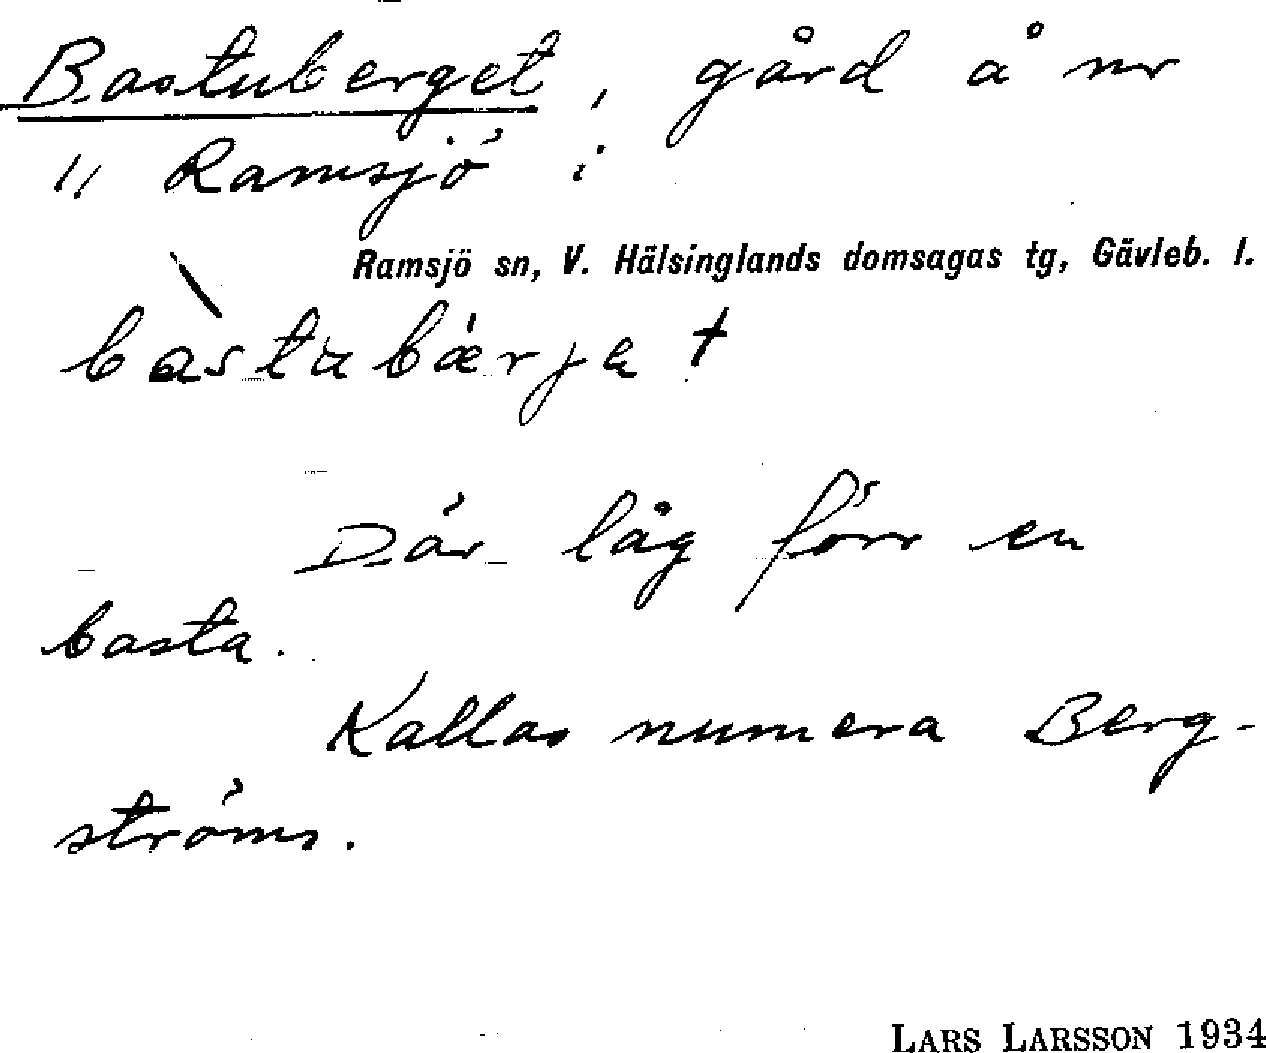 Bastuberget, gård å nr
11 Ramsjö i
Ramsjö sn, V. Hälsinglands domsagas tg, Gävleb. l.
bàstubærje †
Där låg förr en
basta.
Kallas numera Berg-
ströms.
LARS LARSSON 1934